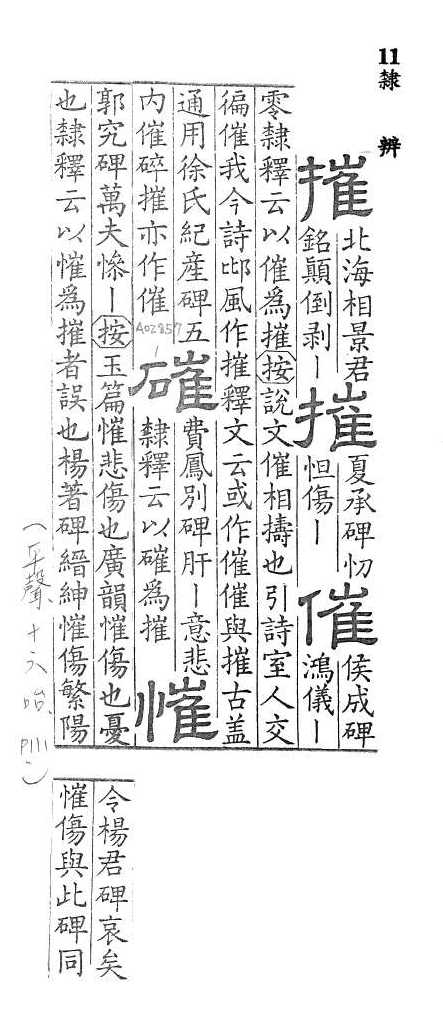 11 隸辨
摧
北海相景君
銘顛倒剥ー
摧
夏承碑忉
怛傷ー
催
侯成碑
鴻儀ー
零隸釋云以催爲摧按說文催相擣也引詩室人交
徧催我今詩邶風作摧釋文云或作催催與摧古盖
通用徐氏紀產碑五
内催碎摧亦作催
A02857-1
磪
費鳳別碑肝ー意悲
隸釋云以磪爲摧
慛
郭究碑萬夫慘ー按玉篇慛悲傷也廣韻慛傷也憂
也隸釋云以慛爲摧者誤也楊著碑縉紳慛傷繁陽
令楊君碑哀矣
慛傷與此碑同
(平聲、十六咍、P111)